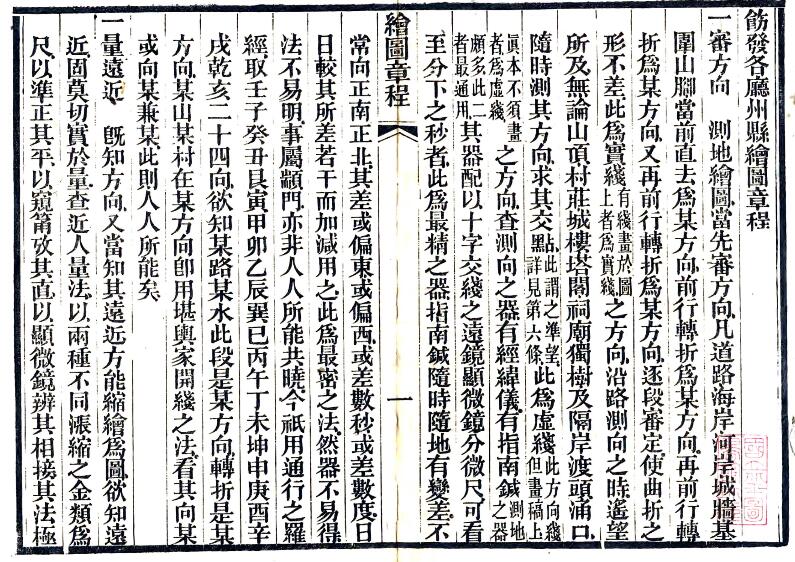 飭發各廳州縣繪圖章程
一審方向　測地繪圖當先審方向凡道路海岸河岸城牆基
圍山腳當前直去爲某方向前行轉折爲某方向再前行轉
折爲某方向又再前行轉折爲某方向逐段審定使曲折之
形不差此爲實綫有綫畫於圖上者爲實綫之方向沿路測向之時遙望
所及無論山頂村莊城樓塔閣祠廟獨樹及隔岸渡頭涌口
隨時測其方向求其交點此謂之準望詳見第六條此爲虛綫此方向綫但畫稿上
眞本不須畫者爲虛綫之方向查測向之器有經緯儀有指南鍼測地之器
頗多此二者最通用其器配以十字交綫之遠鏡顯微鏡分微尺可看
至分下之秒者此爲最精之器指南鍼隨時隨地有變差不
繪圖章程
一
常向正南正北其差或偏東或偏西或差數秒或差數度日
日較其所差若干而加減用之此爲最密之法然器不易得
法不易明事屬顓門亦非人人所能共曉今衹用通行之羅
經取壬子癸丑艮寅甲卯乙辰巽巳丙午丁未坤申庚酉辛
戌乾亥二十四向欲知某路某水此段是某方向轉折是某
方向某山某村在某方向卽用堪輿家開綫之法看其向某
或向某兼某此則人人所能矣
一量遠近　旣知方向又當知其遠近方能縮繪爲圖欲知遠
近固莫切實於量查近人量法以兩種不同漲縮之金類爲
尺以準正其平以窺筩攷其直以顯微鏡辨其相接其法極